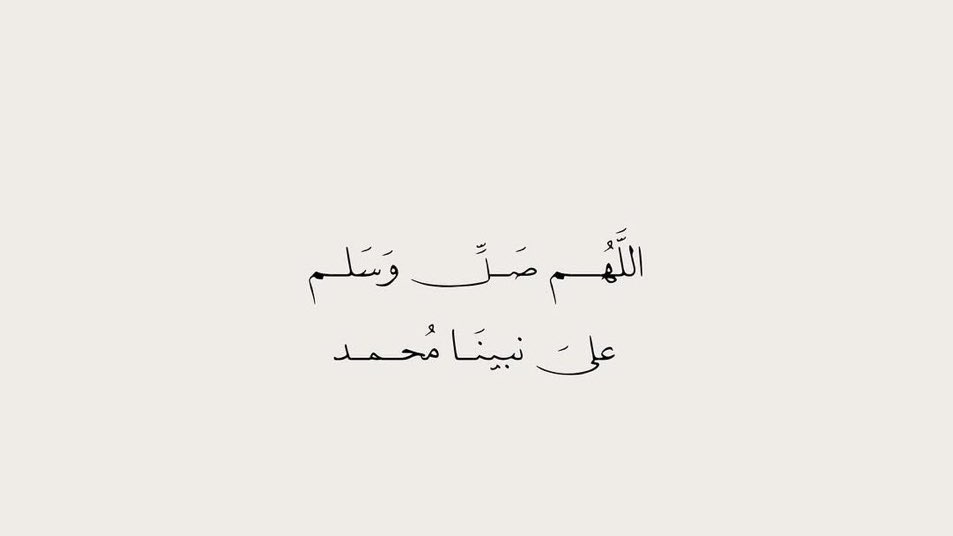 اللَّهُم صَلِّ وَسَلم
علىَ نبينَا مُحمد